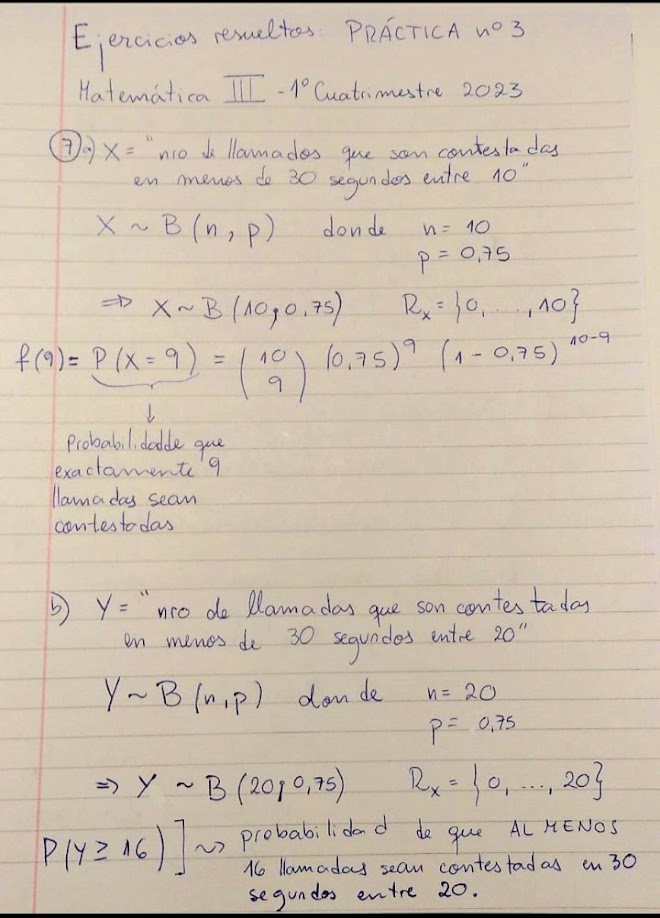 Ejercicios resueltos: PRÁCTICA nº 3
Matemática III - 1º Cuatrimestre 2023
7 a) X = "nro de llamados que son contestadas
en menos de 30 segundos entre 10"
X ~ B(n, p) donde n = 10
p = 0,75
⇒ X ~ B(10; 0,75) Rx = {0, ..., 10}
f(9) = P(X = 9) = (10 9) (0,75)^9 (1 - 0,75)^10-9
↓
Probabilidadde que
exactamente 9
llamadas sean
contestadas
b) Y = "nro de llamadas que son contestadas
en menos de 30 segundos entre 20"
Y ~ B(n, p) donde n = 20
p = 0,75
⇒ Y ~ B(20; 0,75) Rx = {0, ..., 20}
P(Y ≥ 16) ] ⇝ probabilidad de que AL MENOS
16 llamadas sean contestadas en 30
segundos entre 20.